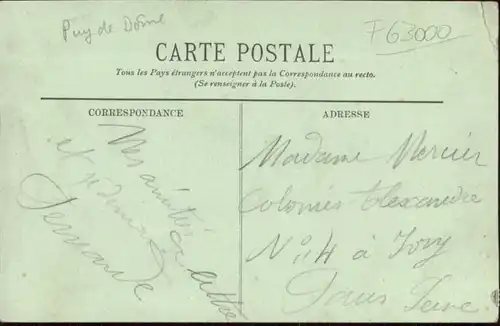 Puy de Dôme
F63000
CARTE POSTALE
Tous les Pays étrangers n'acceptent pas la Correspondance au recto.
(Se renseigner à la Poste).
CORRESPONDANCE
Mes amitiés
et
ADRESSE
Madame Mercier
Colonies Alexandre
N° 4 à Ivry
Seine